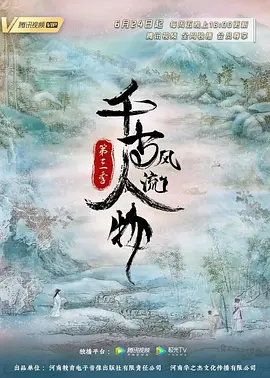 腾讯视频 VIP
6月24日起 每周五晚上18:00更新
腾讯视频 全网独播 会员尊享
千古风流人物
第三季
独播平台: 腾讯视频 极光TV
出品单位: 河南教育电子音像出版社有限责任公司 河南华之杰文化传播有限公司